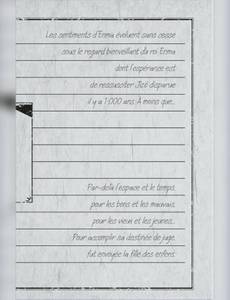 Les sentiments d'Enma évoluent sans cesse
sous le regard bienveillant du roi Enma
dont l'espérance est
de ressusciter Jizô disparue
il y a 1 000 ans. À moins que...
Par-delà l'espace et le temps,
pour les bons et les mauvais,
pour les vieux et les jeunes...
Pour accomplir sa destinée de juge,
fut envoyée la fille des enfers.